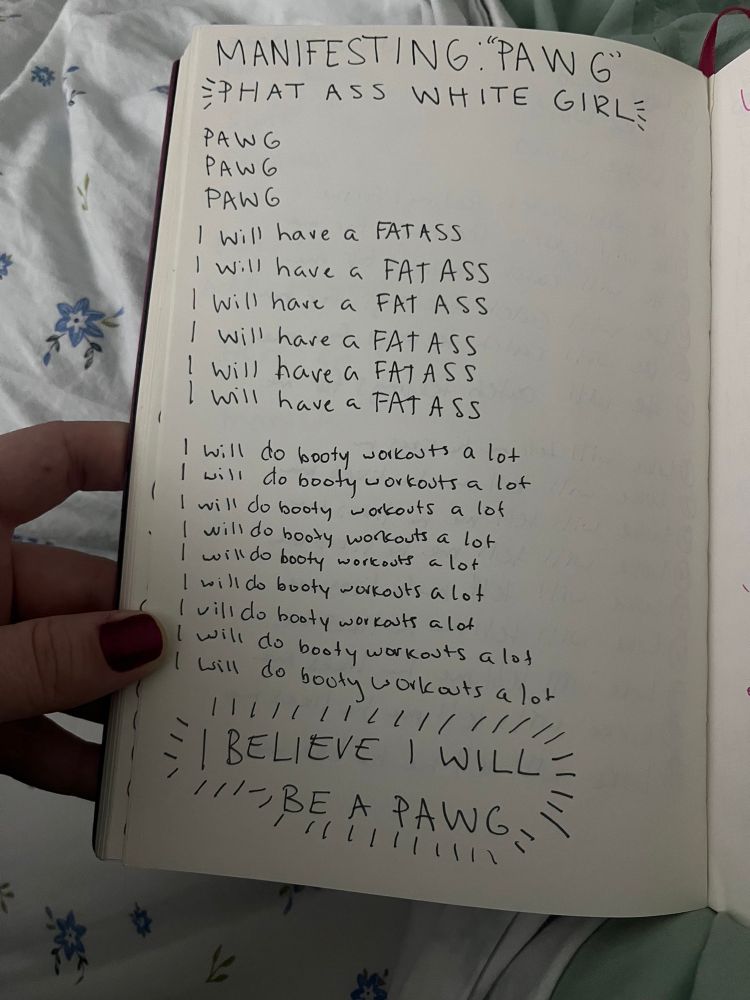 MANIFESTING: "PAWG"
PHAT ASS WHITE GIRL
PAWG
PAWG
PAWG
I will have a FAT ASS
I will have a FAT ASS
I will have a FAT ASS
I will have a FAT ASS
I will have a FAT ASS
I will have a FAT ASS
I will do booty workouts a lot
I will do booty workouts a lot
I will do booty workouts a lot
I will do booty workouts a lot
I will do booty workouts a lot
I will do booty workouts a lot
I will do booty workouts a lot
I will do booty workouts a lot
I will do booty workouts a lot
I BELIEVE I WILL
BE A PAWG